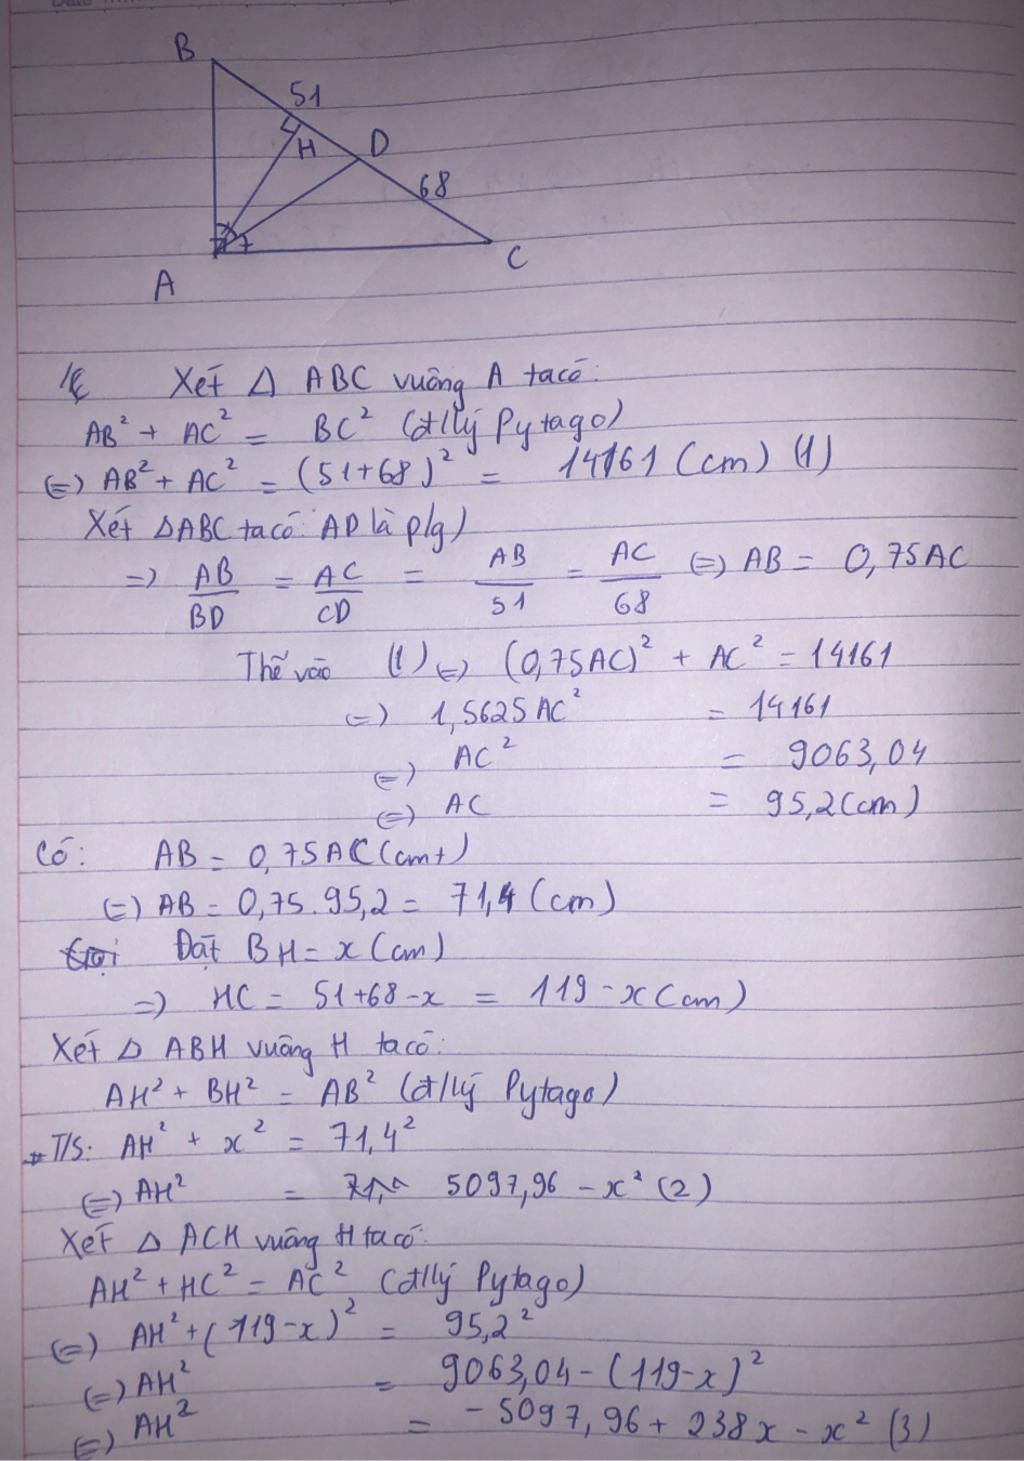 B
51
H
D
68
A
C
Xét Δ ABC vuông A ta có:
AB² + AC² = BC² (đ/lý Pytago)
(=) AB² + AC² = (51+68)² = 14161 (cm) (1)
Xét ΔABC ta có: AD là p/g)
=) AB/BD = AC/CD = AB/51 = AC/68 (=) AB = 0,75AC
Thế vào (1) (=) (0,75AC)² + AC² = 14161
(=) 1,5625AC² = 14161
(=) AC² = 9063,04
(=) AC = 95,2(cm)
Có: AB = 0,75AC(cmt)
(=) AB = 0,75.95,2 = 71,4 (cm)
Đặt BH = x (cm)
=) HC = 51+68-x = 119-x(cm)
Xét Δ ABH vuông H ta có:
AH² + BH² = AB² (đ/lý Pytago)
T/S: AH² + x² = 71,4²
(=) AH² = 5097,96 - x² (2)
Xét Δ ACH vuông H ta có:
AH² + HC² = AC² (đ/lý Pytago)
(=) AH² + (119-x)² = 95,2²
(=) AH² = 9063,04 - (119-x)²
(=) AH² = -5097,96 + 238x - x² (3)